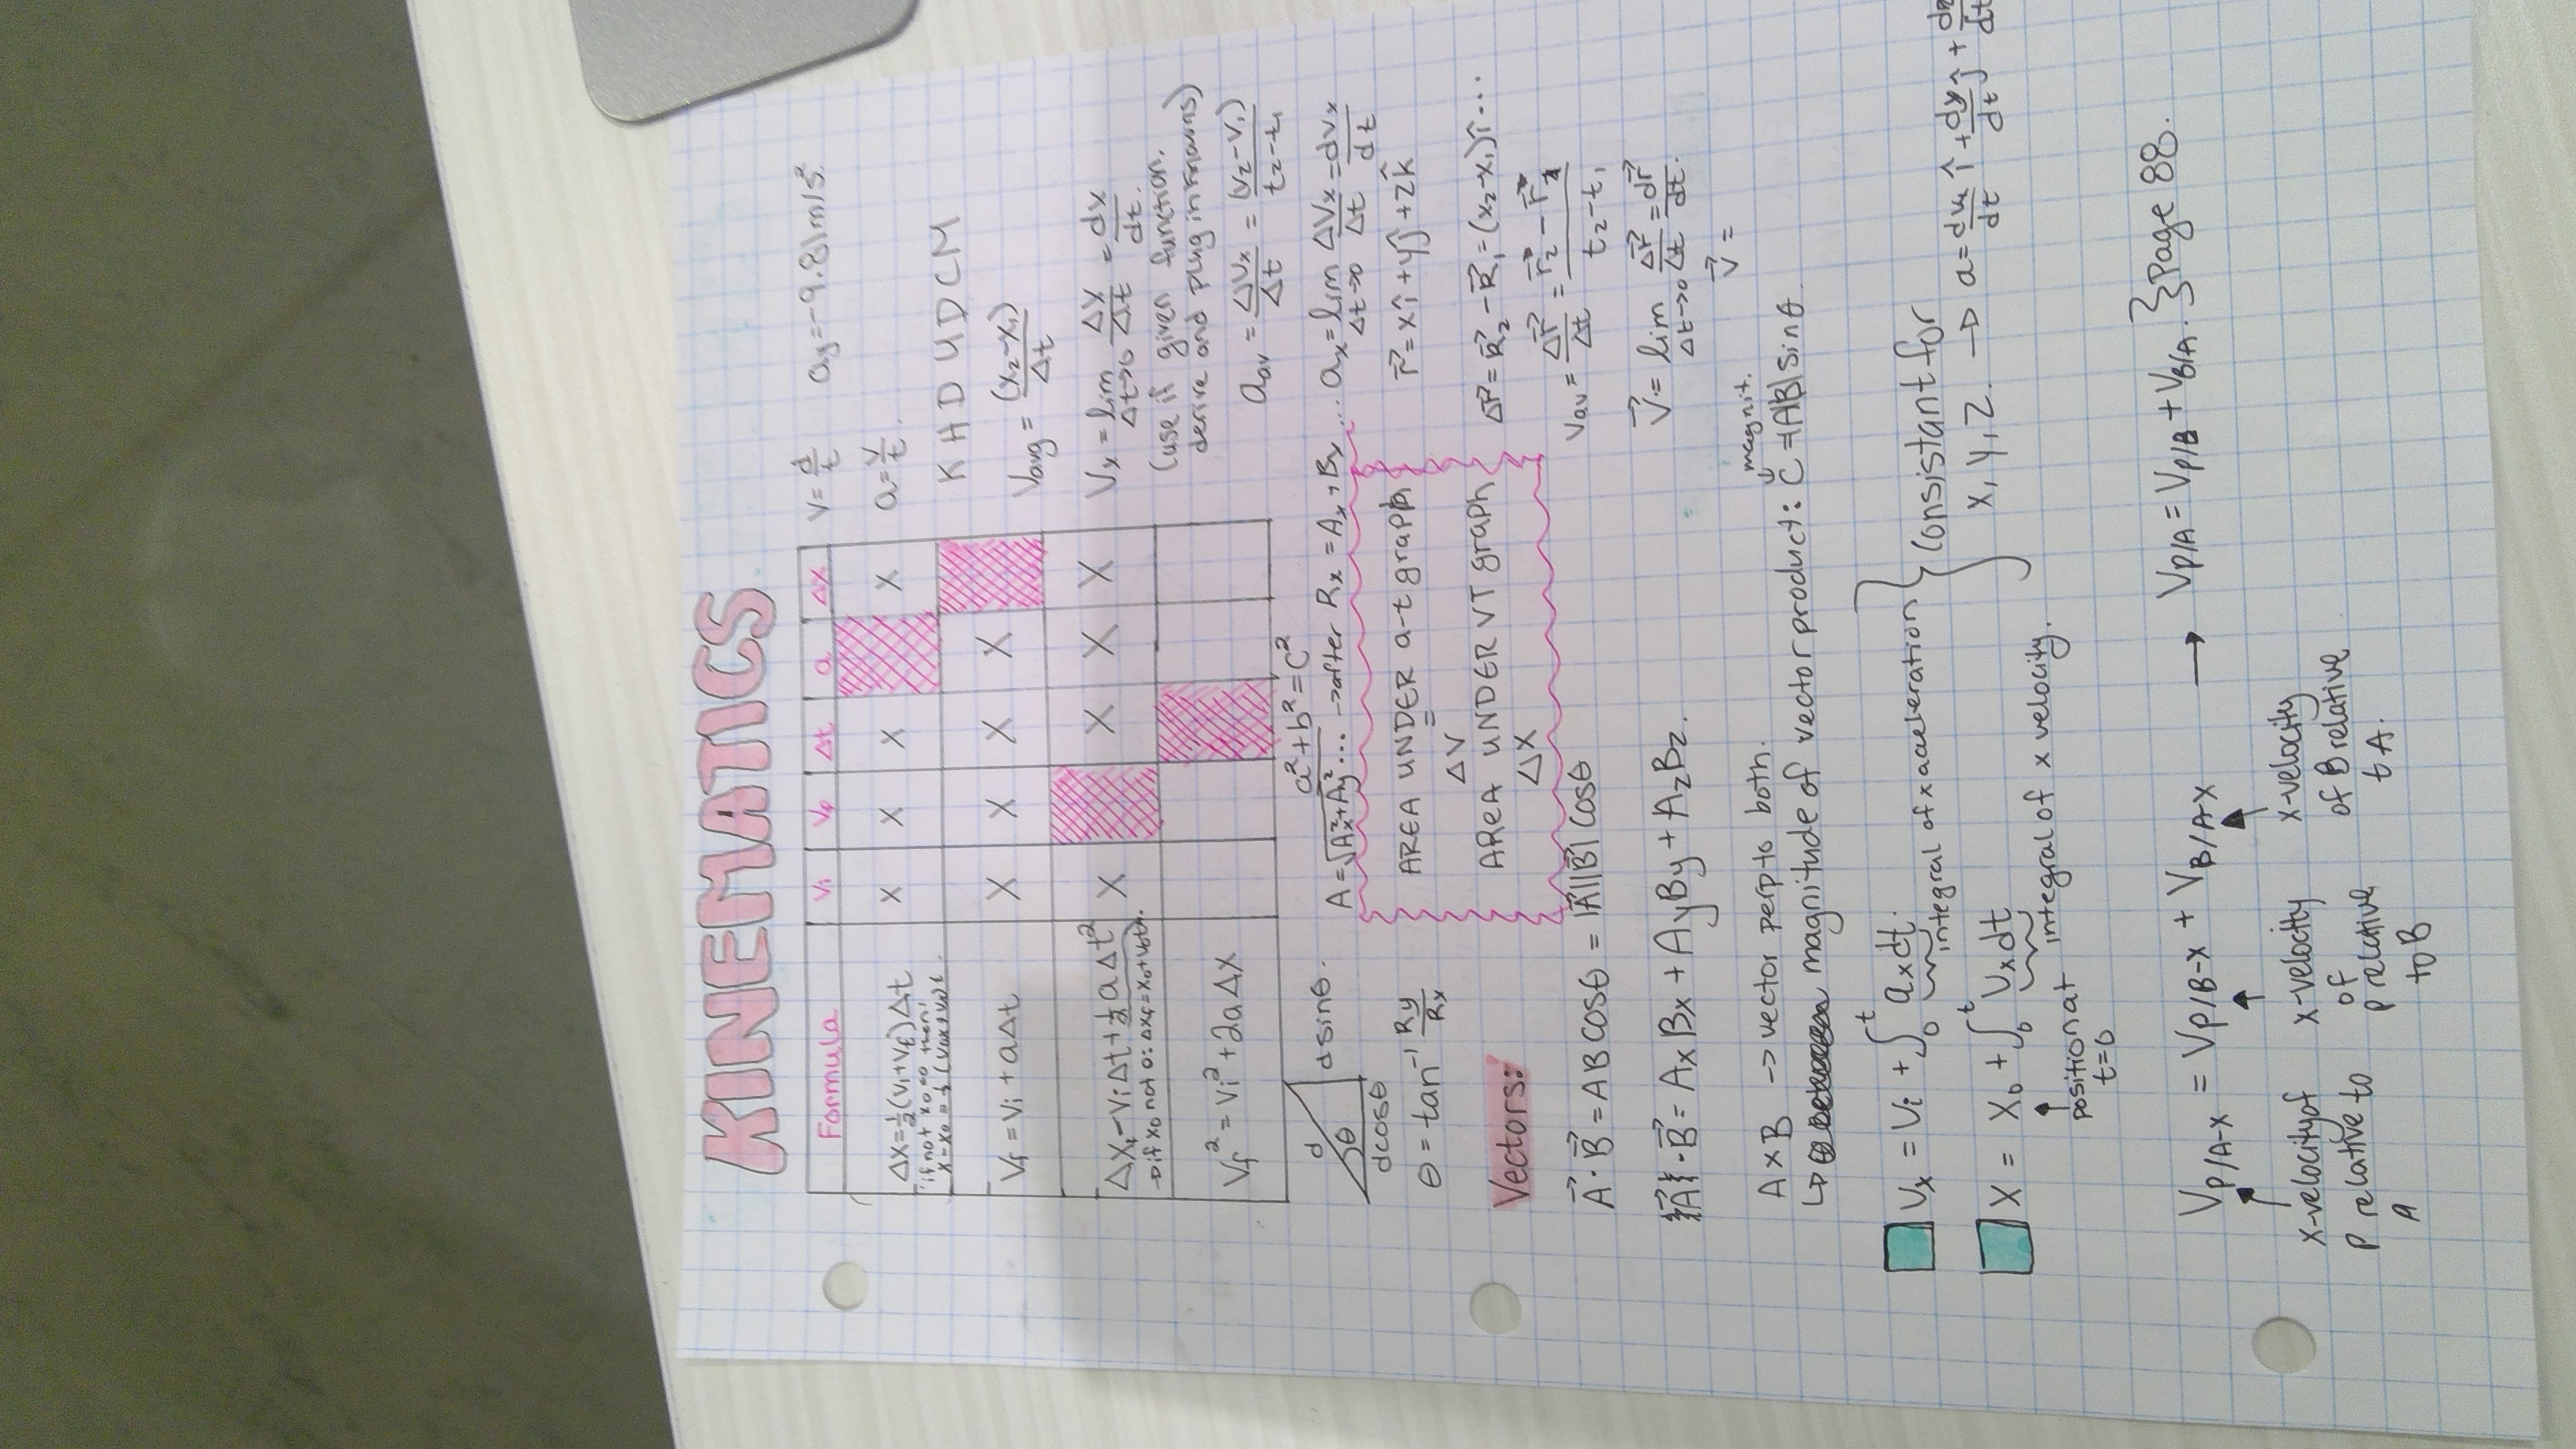 KINEMATICS
Formula Vi Vf Δt a Δx
Δx=½(Vi+Vf)Δt X X X X
if not x0=0 then:
x-x0=½(V0x+Vx)t.
Vf=Vi+aΔt X X X X
ΔXf=ViΔt+½aΔt² X X X X
→if x0 not 0: Δxf=x0+V0t..
Vf²=Vi²+2aΔX
V=d/t ay=-9.81m/s².
a=V/t.
KHDUDCM
Vavg=(x2-x1)/Δt
Vx=lim Δt→0 Δx/Δt=dx/dt.
(use if given function.
derive and plug in knowns)
aav=ΔVx/Δt=(V2-V1)/t2-t1
a²+b²=c²
d dsinθ.
θ
dcosθ
A=√Ax²+Ay²... →after Rx=Ax+Bx... ax=lim Δt→0 ΔVx/Δt=dVx/dt
θ=tan⁻¹ Ry/Rx
AREA UNDER a-t graph
=
ΔV
AREA UNDER VT graph
ΔX
r⃗=xî+yĵ+zk̂
Δr⃗=R⃗2-R⃗1=(x2-x1)î...
Vav=Δr⃗/Δt=r⃗2-r⃗1/t2-t1
V⃗=lim Δt→0 Δr⃗/Δt=dr⃗/dt.
V⃗=
Vectors:
A⃗·B⃗=ABCosθ=|A⃗||B⃗|cosθ
A⃗·B⃗=AxBx+AyBy+AzBz.
AxB →vector perp to both.
magnit.
↳ magnitude of vector product: C=|AB|sinθ
Vx=Vi+∫0t axdt.
integral of x acceleration
X=X0+∫0t Vxdt
integral of x velocity.
position at
t=0
Consistant for
x,y,z. → a=dVx/dt î+dVy/dt ĵ+
VP/A-x=VP/B-x+VB/A-x → VP/A=VP/B+VB/A. }Page 88.
x-velocity of
P relative to
A
x-velocity
of
P relative
to B
x-velocity
of B relative
t A.